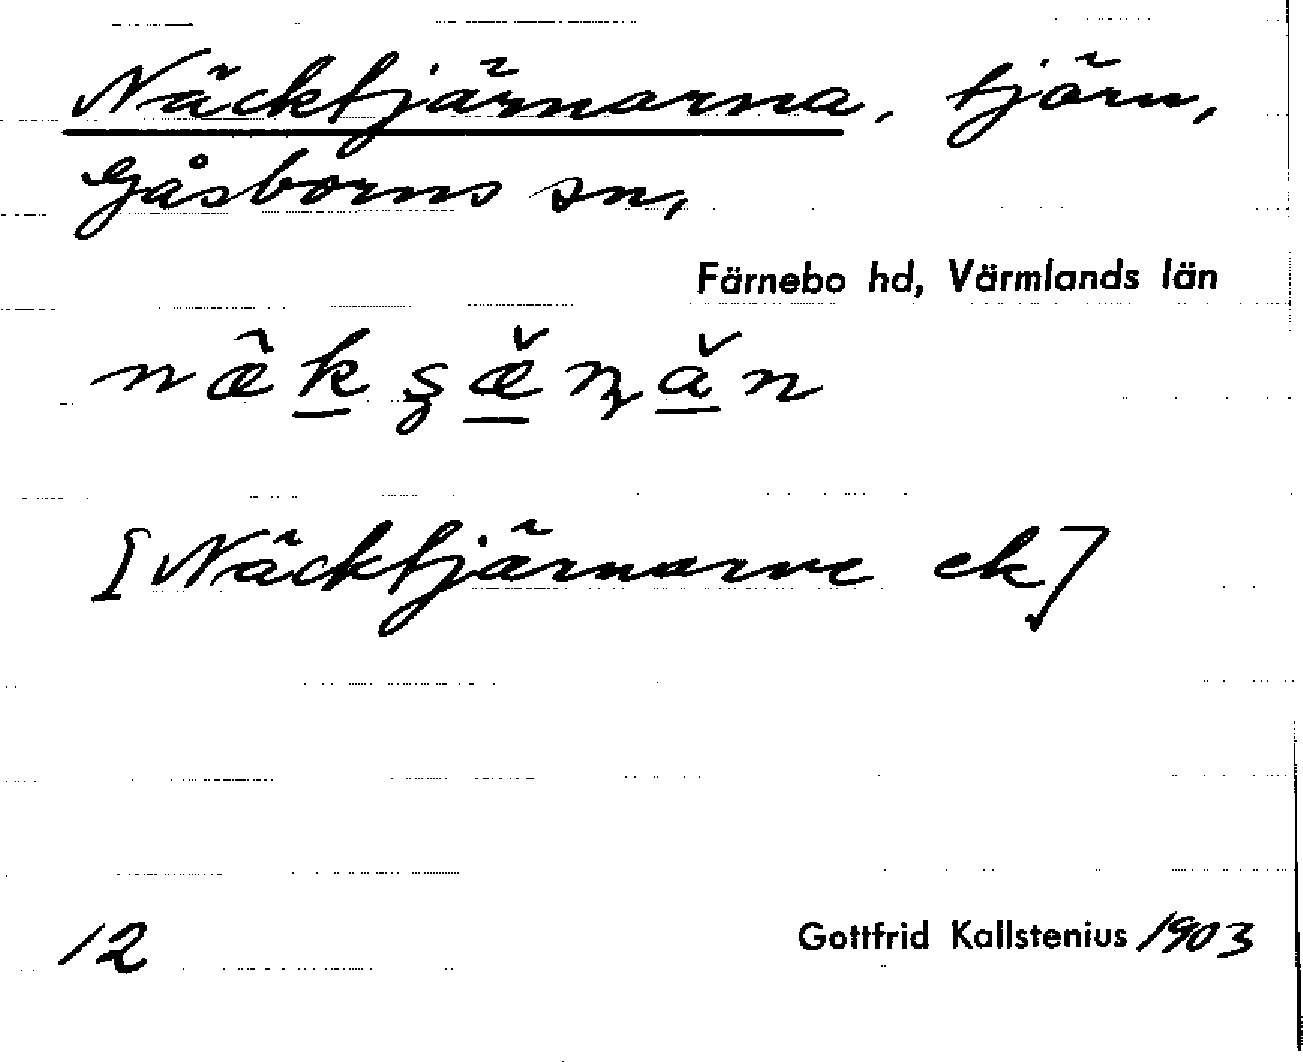 Näcktjärnarna, tjärn,
Gåsborns sn,
Färnebo hd, Värmlands län
næ̂k̲ʂæ̲̌ɳǎ̲n
[Näcktjärnarne ek]
12
Gottfrid Kallstenius 1903